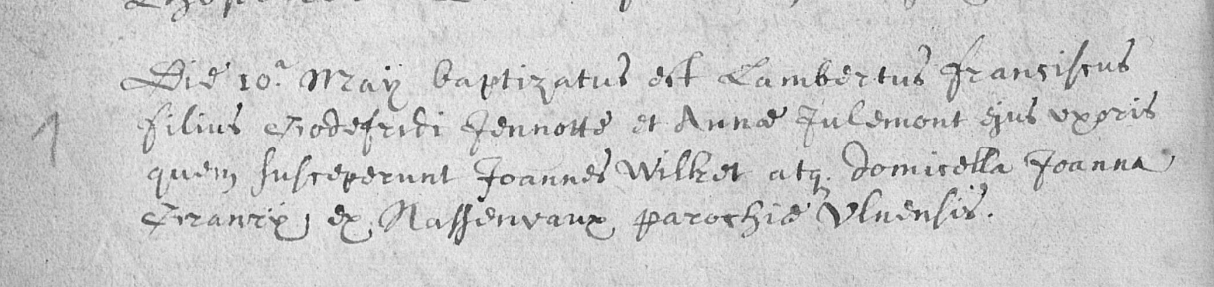 Die 10.a Maÿ baptizatus est Lambertus Franciscus
filius Godefridi Jennotte et Annæ Julemont ejus uxoris
quem susceperunt Joannes Wilket atq. domicella Joanna
ex Nassenvaux parochiæ Olnensis.
1